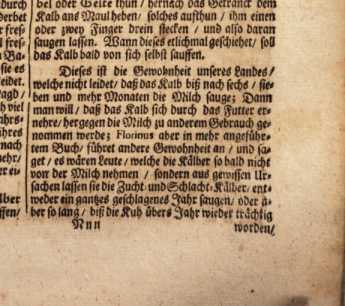 bel oder Gelte thun / hernach das Getränck dem
Kalb ans Maul heben / solches aufthun / ihm einen
oder zwey Finger drein stecken / und also daran
saugen lassen. Wann dieses etlichmal geschiehet / soll
das Kalb bald von sich selbst sauffen.
Dieses ist die Gewohnheit unseres Landes /
welche nicht leidet / daß das Kalb biß nach sechs / sie-
ben und mehr Monaten die Milch sauge; Dann
man will / daß das Kalb sich durch das Futter er-
nehre / hergegen die Milch zu anderem Gebrauch ge-
nommen werde; Florinus aber in mehr angeführ-
tem Buch / führet andere Gewohnheit an / und sa-
get / es wären Leute / welche die Kälber so bald nicht
von der Milch nehmen / sondern aus gewissen Ur-
sachen lassen sie die Zucht- und Schlacht-Kälber / ent-
weder ein gantzes geschlagenes Jahr saugen / oder a-
ber so lang / biß die Kuh übers Jahr wieder trächtig
Nnn worden /